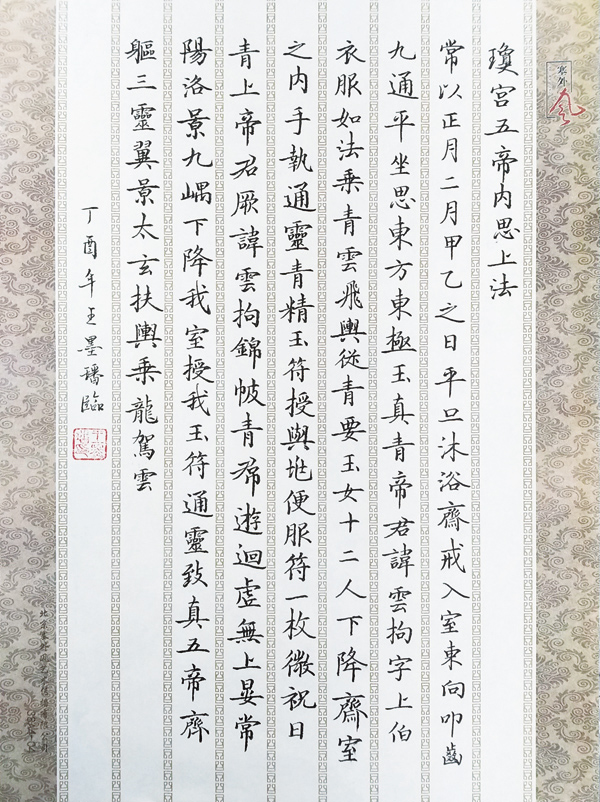 瓊宮五帝內思上法
常以正月二月甲乙之日平旦沐浴齋戒入室東向叩齒
九通平坐思東方東極玉真青帝君諱雲拘字上伯
衣服如法乘青雲飛輿從青要玉女十二人下降齋室
之內手執通靈青精玉符授與兆便服符一枚微祝曰
青上帝君厥諱雲拘錦帔青帬遊迴虛無上晏常
陽洛景九嵎下降我室授我玉符通靈致真五帝齊
軀三靈翼景太玄扶輿乘龍駕雲
丁酉年王墨璠臨